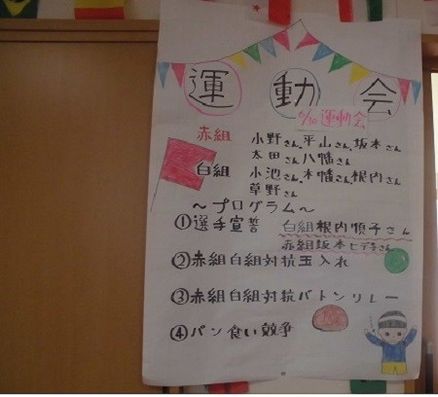 運動会
6/30 運動会
赤組 小野さん、平山さん、坂本さん
太田さん八幡さん
白組 小池さん、木幡さん、根内さん
草野さん
～プログラム～
①選手宣誓 白組根内順子さん
赤組坂本ヒデ子さん
②赤組白組対抗玉入れ
③赤組白組対抗バトンリレー
④パン食い競争